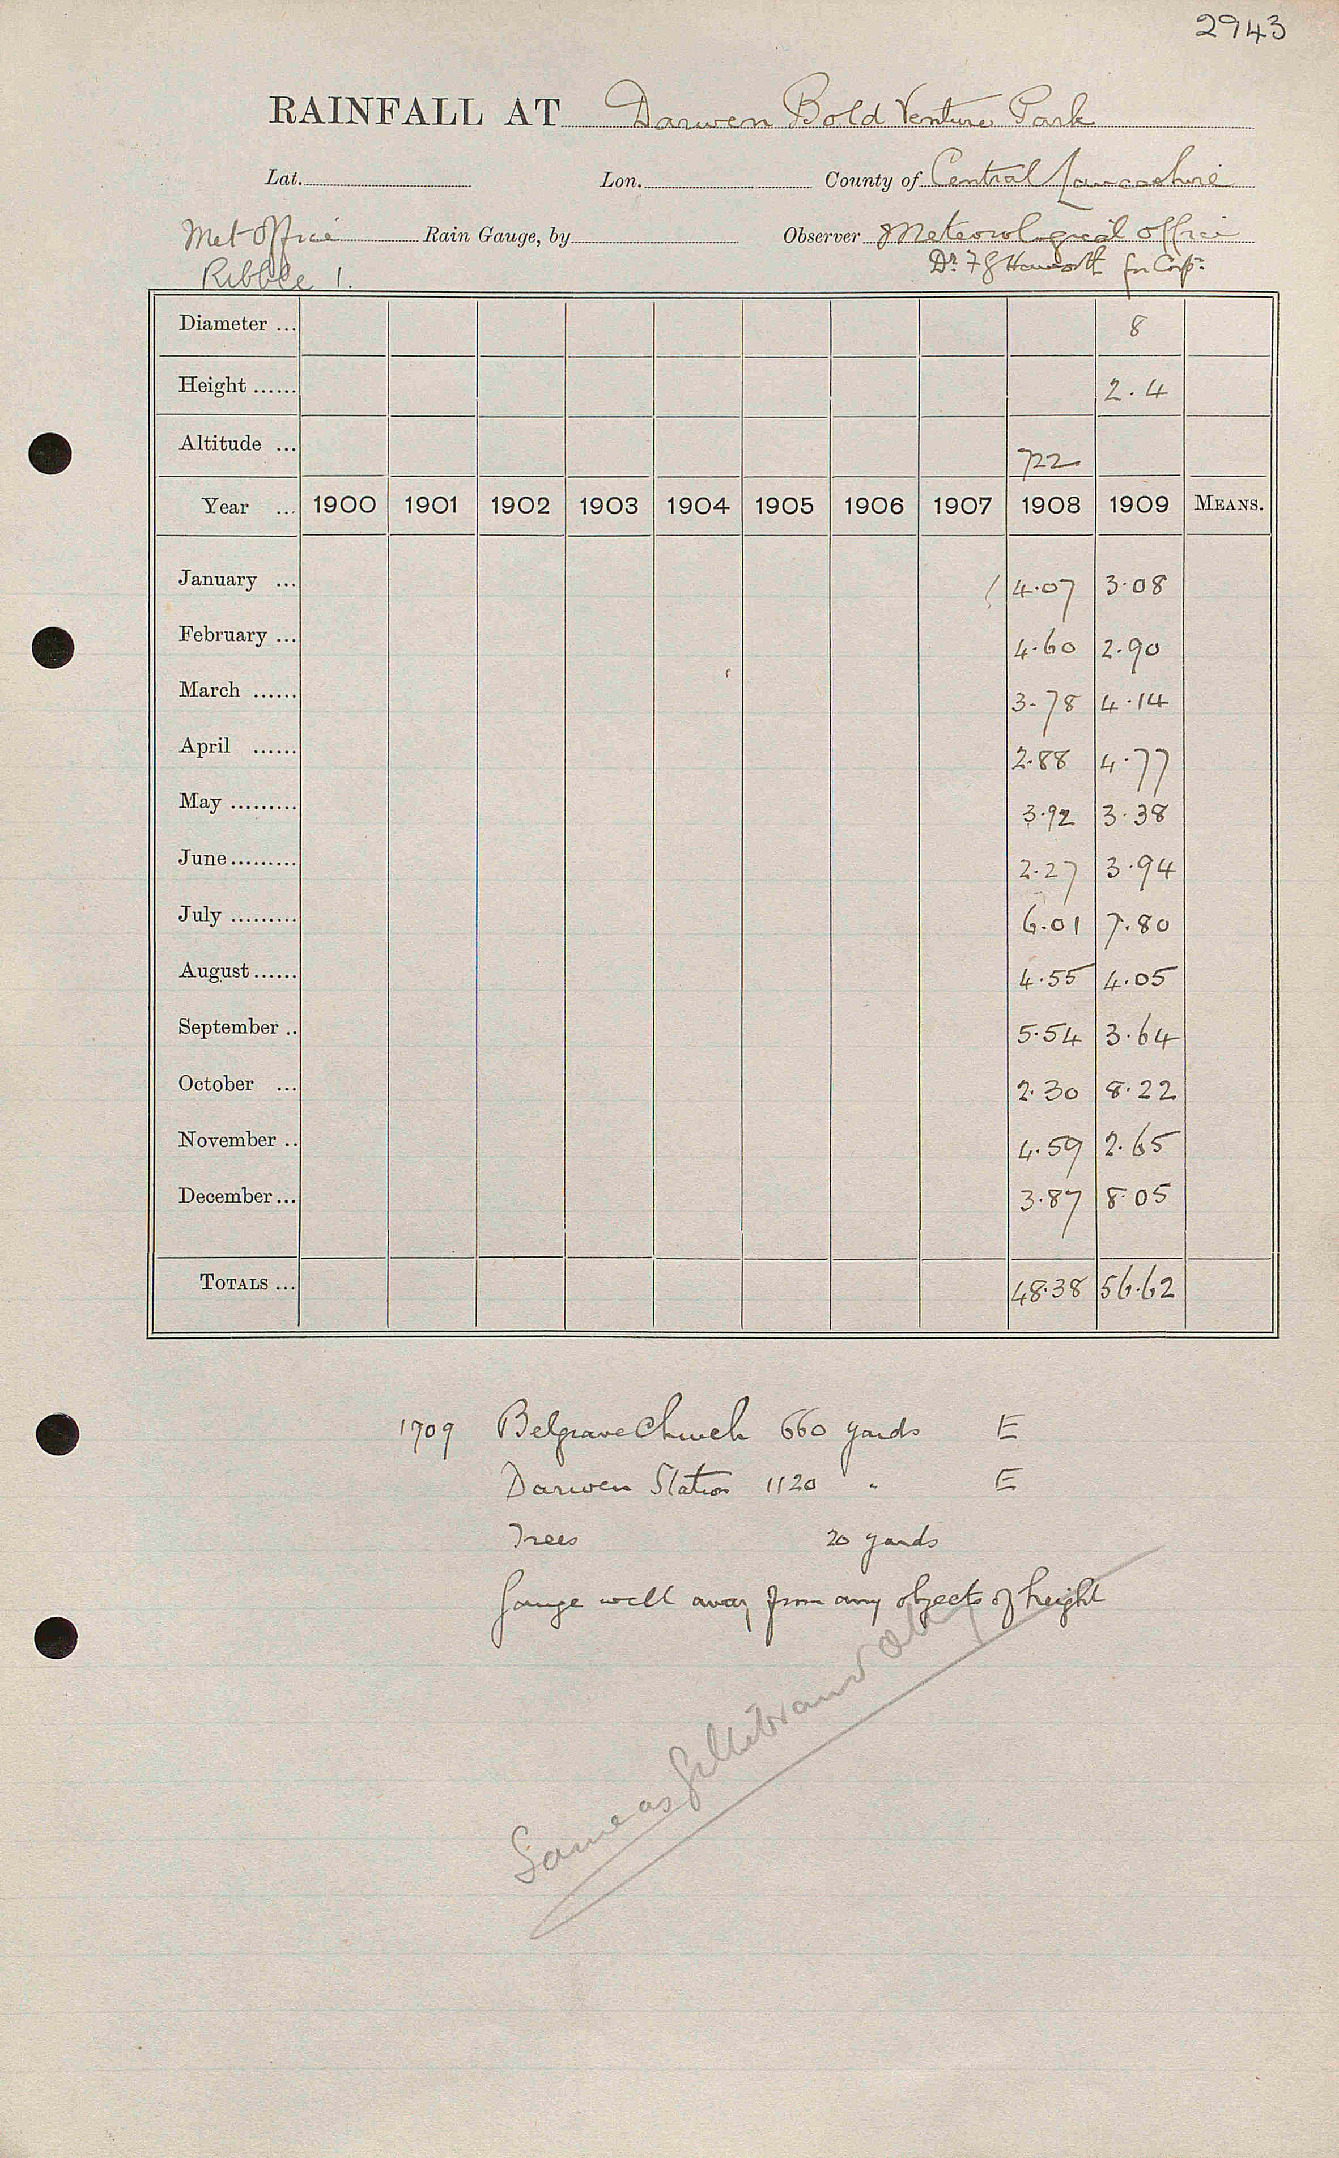 2943
RAINFALL AT Darwen Bold Venture Park
Lat. Lon. County of Central Lancashire
Met Office Rain Gauge, by Observer Meteorological Office
Ribble 1. Dr. F G Haworth for Corp:
Diameter ... 8
Height ...... 2.4
Altitude ... 722
Year ... 1900 1901 1902 1903 1904 1905 1906 1907 1908 1909 MEANS.
January ... 4.07 3.08
February ... 4.60 2.90
March ...... 3.78 4.14
April ...... 2.88 4.77
May ......... 3.92 3.38
June ......... 2.27 3.94
July ......... 6.01 7.80
August ...... 4.55 4.05
September .. 5.54 3.64
October ... 2.30 8.22
November .. 4.59 2.65
December ... 3.87 8.05
TOTALS ... 48.38 56.62
1909 Belgrave Church 660 yards E
Darwen Station 1120 " E
Trees 20 yards
Gauge well away from any objects of height
Same as Gillibrand